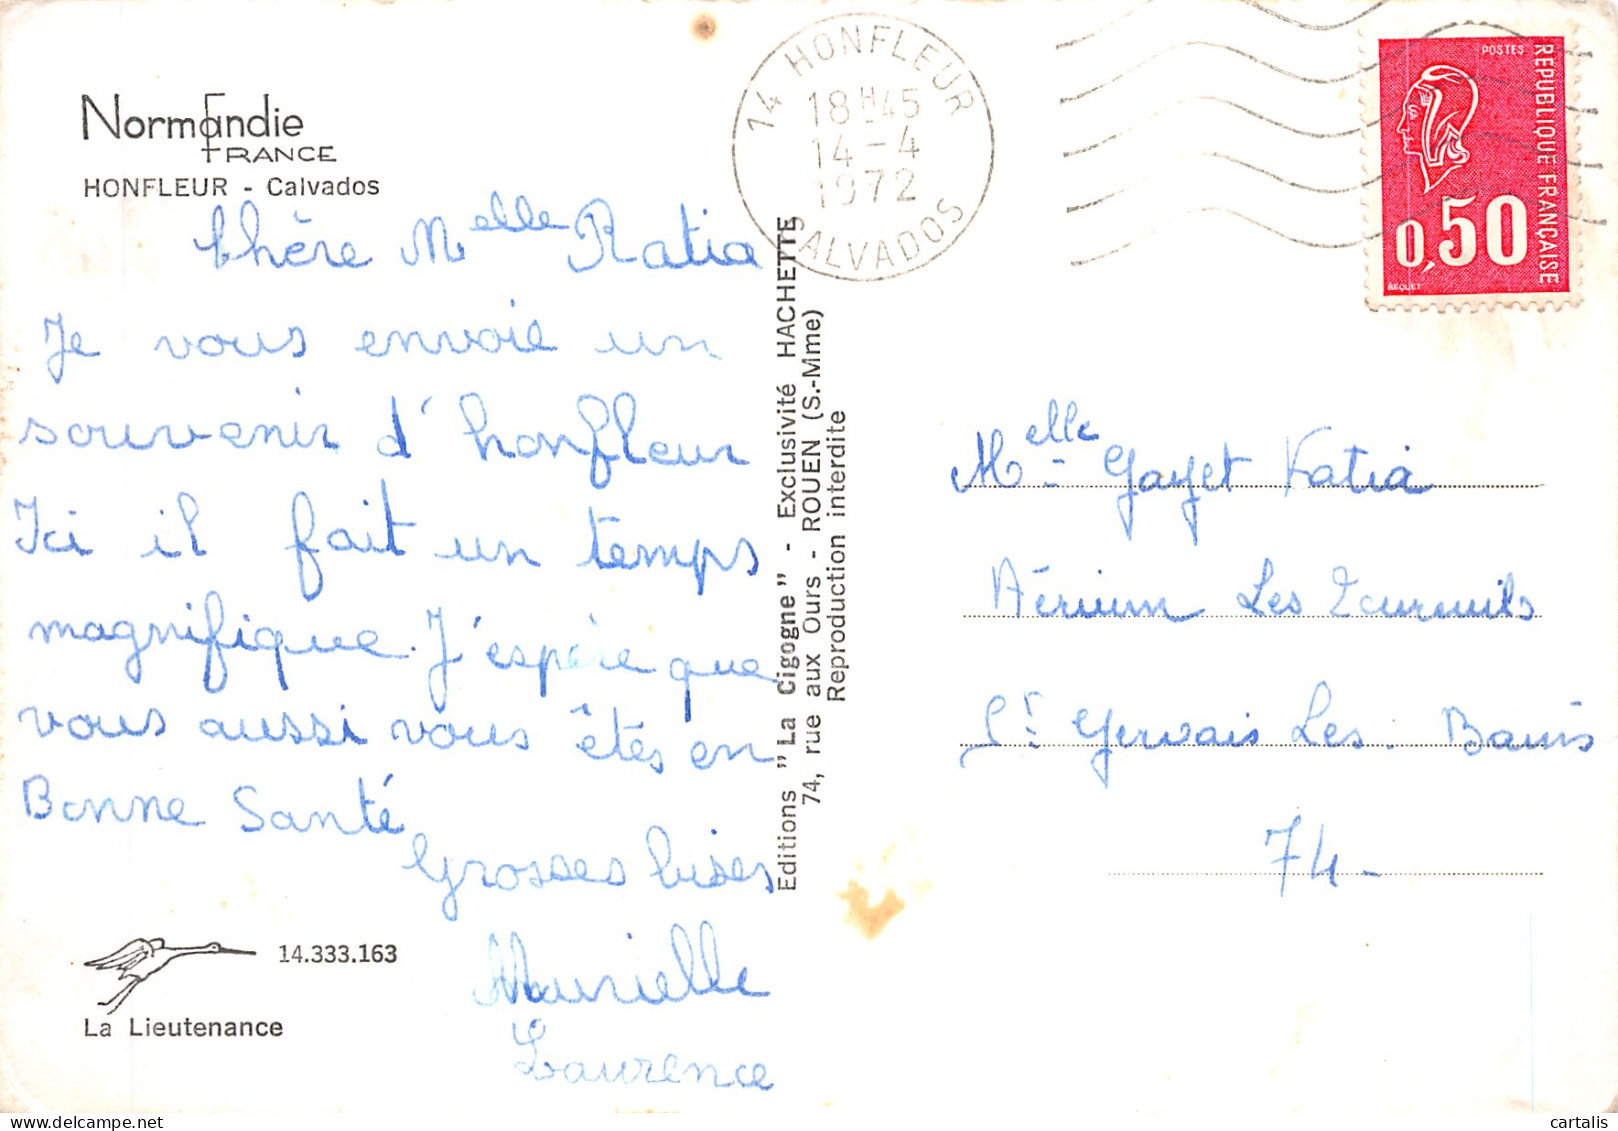 Normandie
FRANCE
HONFLEUR - Calvados
Chère Melle Katia
Je vous envoie un
souvenir d'honfleur
Ici il fait un temps
magnifique. J'espère que
vous aussi vous êtes en
Bonne Santé
Grosses bises
Laurence
14.333.163
La Lieutenance
Editions "La Cigogne" - Exclusivité HACHETTE
74, rue aux Ours - ROUEN (S.-Mme)
Reproduction interdite
14 HONFLEUR
18H45
14-4
1972
CALVADOS
POSTES
REPUBLIQUE FRANÇAISE
0,50
BEQUET
Melle Gayet Katia
Aérium Les
St Gervais Les. Bains
74-
cartalis
delcampe.net